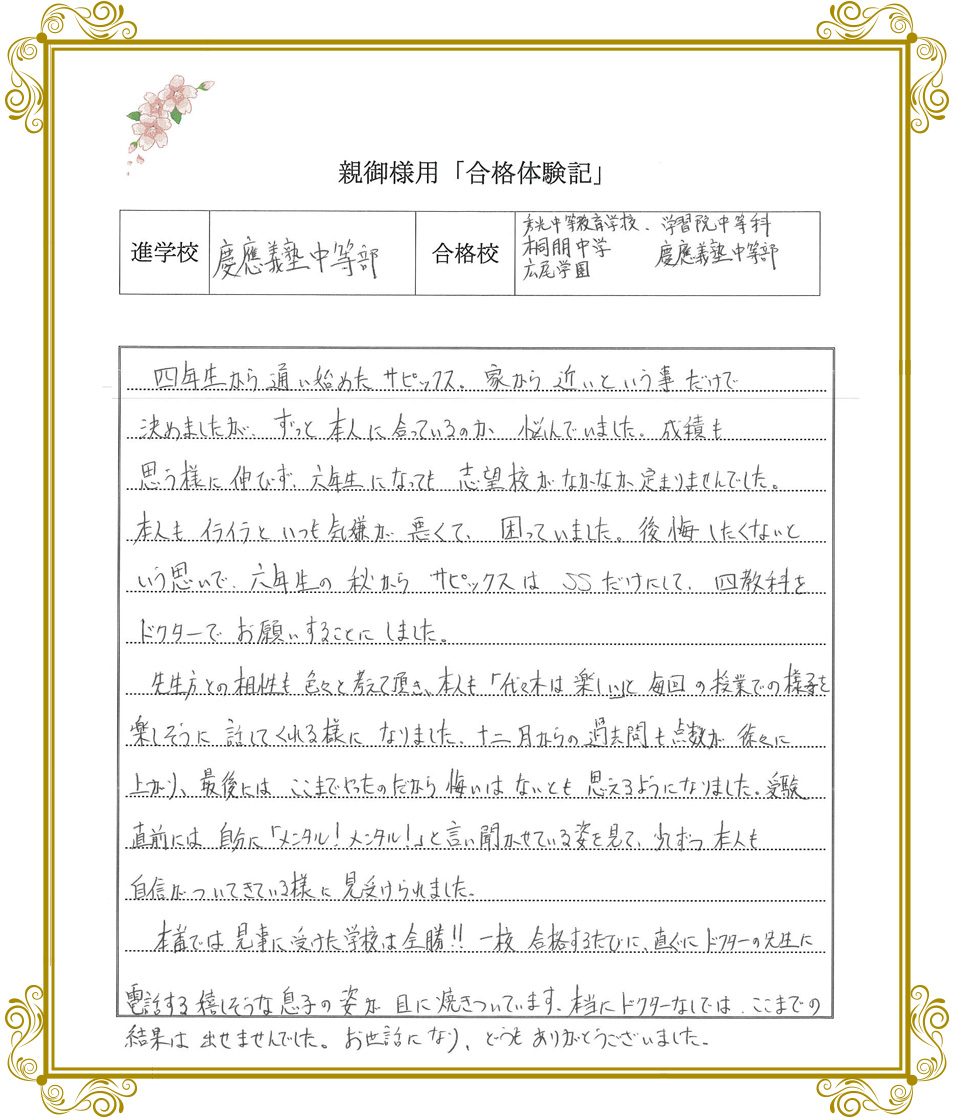 親御様用「合格体験記」
進学校 慶應義塾中等部 合格校 秀光中等教育学校、学習院中等科
桐朋中学 慶應義塾中等部
広尾学園
四年生から通い始めたサピックス。家から近いという事だけで
決めましたが、ずっと本人に合っているのか、悩んでいました。成績も
思う様に伸びず、六年生になっても志望校がなかなか定まりませんでした。
本人もイライラといつも気嫌が悪くて、困っていました。後悔したくないと
いう思いで、六年生の秋からサピックスはSSだけにして、四教科を
ドクターでお願いすることにしました。
先生方との相性も色々と考えて頂き、本人も「代々木は楽しい」と毎回の授業での様子を
楽しそうに話してくれる様になりました。十二月からの過去問も点数が徐々に
上がり、最後にはここまでやったのだから悔いはないとも思えるようになりました。受験
直前には自分に「メンタル!メンタル!」と言い聞かせている姿を見て、少しずつ本人も
自信がついてきている様に見受けられました。
本番では見事に受けた学校は全勝!!一校合格するたびに、直ぐにドクターの先生に
電話する嬉しそうな息子の姿が目に焼きついています。本当にドクターなしでは、ここまでの
結果は出せませんでした。お世話になり、どうもありがとうございました。